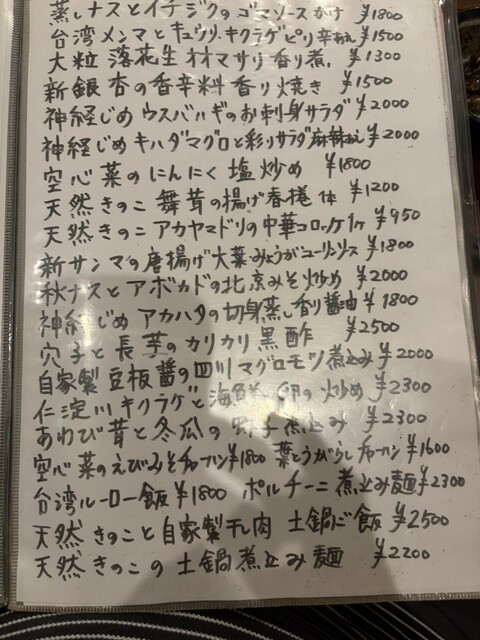 蒸しナスとイチジクのゴマソースかけ ¥1800
台湾メンマとキュウリ、キクラゲピリ辛和え ¥1500
大粒 落花生オオマサリ香り煮 ¥1300
新銀杏の香辛料香り焼き ¥1500
神経じめ ウスバハギのお刺身サラダ ¥2000
神経じめ キハダマグロと彩りサラダ麻辣和え ¥2000
空心菜のにんにく塩炒め ¥1800
天然きのこ 舞茸の揚げ春捲 1本 ¥1200
天然きのこ アカヤマドリの中華コロッケ1ヶ ¥950
新サンマの唐揚げ大葉みょうがユーリンソース ¥1800
秋ナスとアボカドの北京みそ炒め ¥2000
神経じめ アカハタの切身蒸し香り醤油 ¥1800
穴子と長芋のカリカリ黒酢 ¥2500
自家製豆板醤の四川マグロモツ煮込み ¥2000
仁淀川キクラゲと海鮮、卵の炒め ¥2300
あわび茸と冬瓜の 子煮込み ¥2300
空心菜のえびみそチャーハン¥1800 葉とうがらしチャーハン ¥1600
台湾ルーロー飯¥1800 ポルチーニ煮込み麺¥2300
天然きのこと自家製干し肉 土鍋ご飯 ¥2500
天然きのこの土鍋煮込み麺 ¥2200